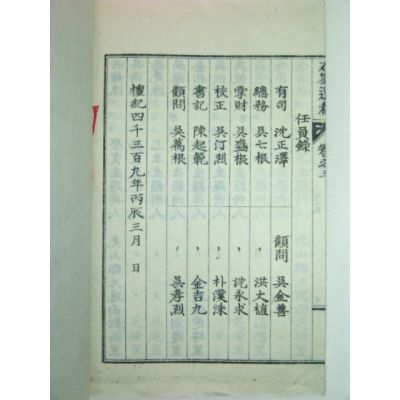 任員錄
有司 沈正澤 顧問 吳金善
總務 吳七根 〃 洪大植
掌財 吳盛根 〃 沈永求
校正 吳汀烈 〃 朴漢洙
書記 陳起範 〃 金吉九
顧問 吳萬根 〃 吳孝烈
檀紀四千三百九年丙辰三月 日